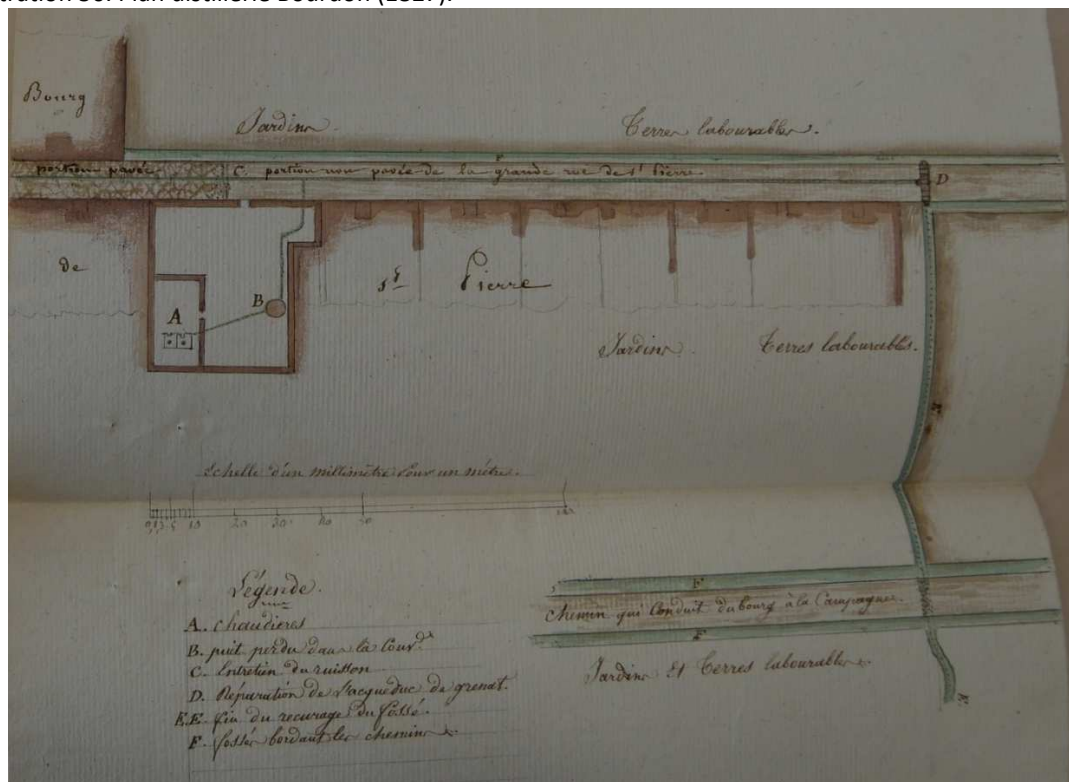 Plan distillerie Bourdon (1827).
Bourg
Jardins.
Terres labourables.
F
portion pavée
C. portion non pavée de la grande rue de St Pierre.
D
de
St Pierre
B
A
Jardins.
Terres labourables.
E
Echelle d'un millimètre pour un mètre.
10 20 30 40 50 100
Légende.
A. Chaudières
B. puit perdu dans la Cour
C. Entretien du ruisson
D. Réparation de l'acqueduc de grenat.
E.E. fin du recurage du fossé.
F. fossés bordant les chemins
F
Chemin qui Conduit du bourg à la Campagne.
F
Jardins Et Terres labourables
E.